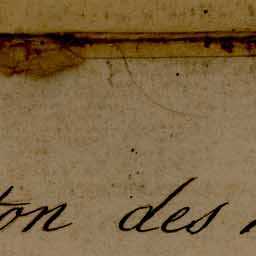 ton des